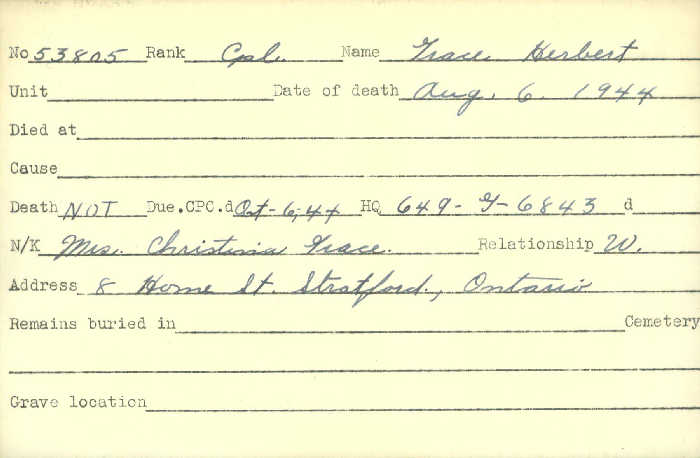 No 53805 Rank Cpl. Name Grace, Herbert
Unit Date of death Aug. 6. 1944
Died at
Cause
Death NOT Due.CPC.d Oct-6,44 HQ 649-G-6843 d
N/K Mrs. Christina Grace. Relationship W.
Address 8 Home St. Stratford, Ontario
Remains buried in Cemetery
Grave location